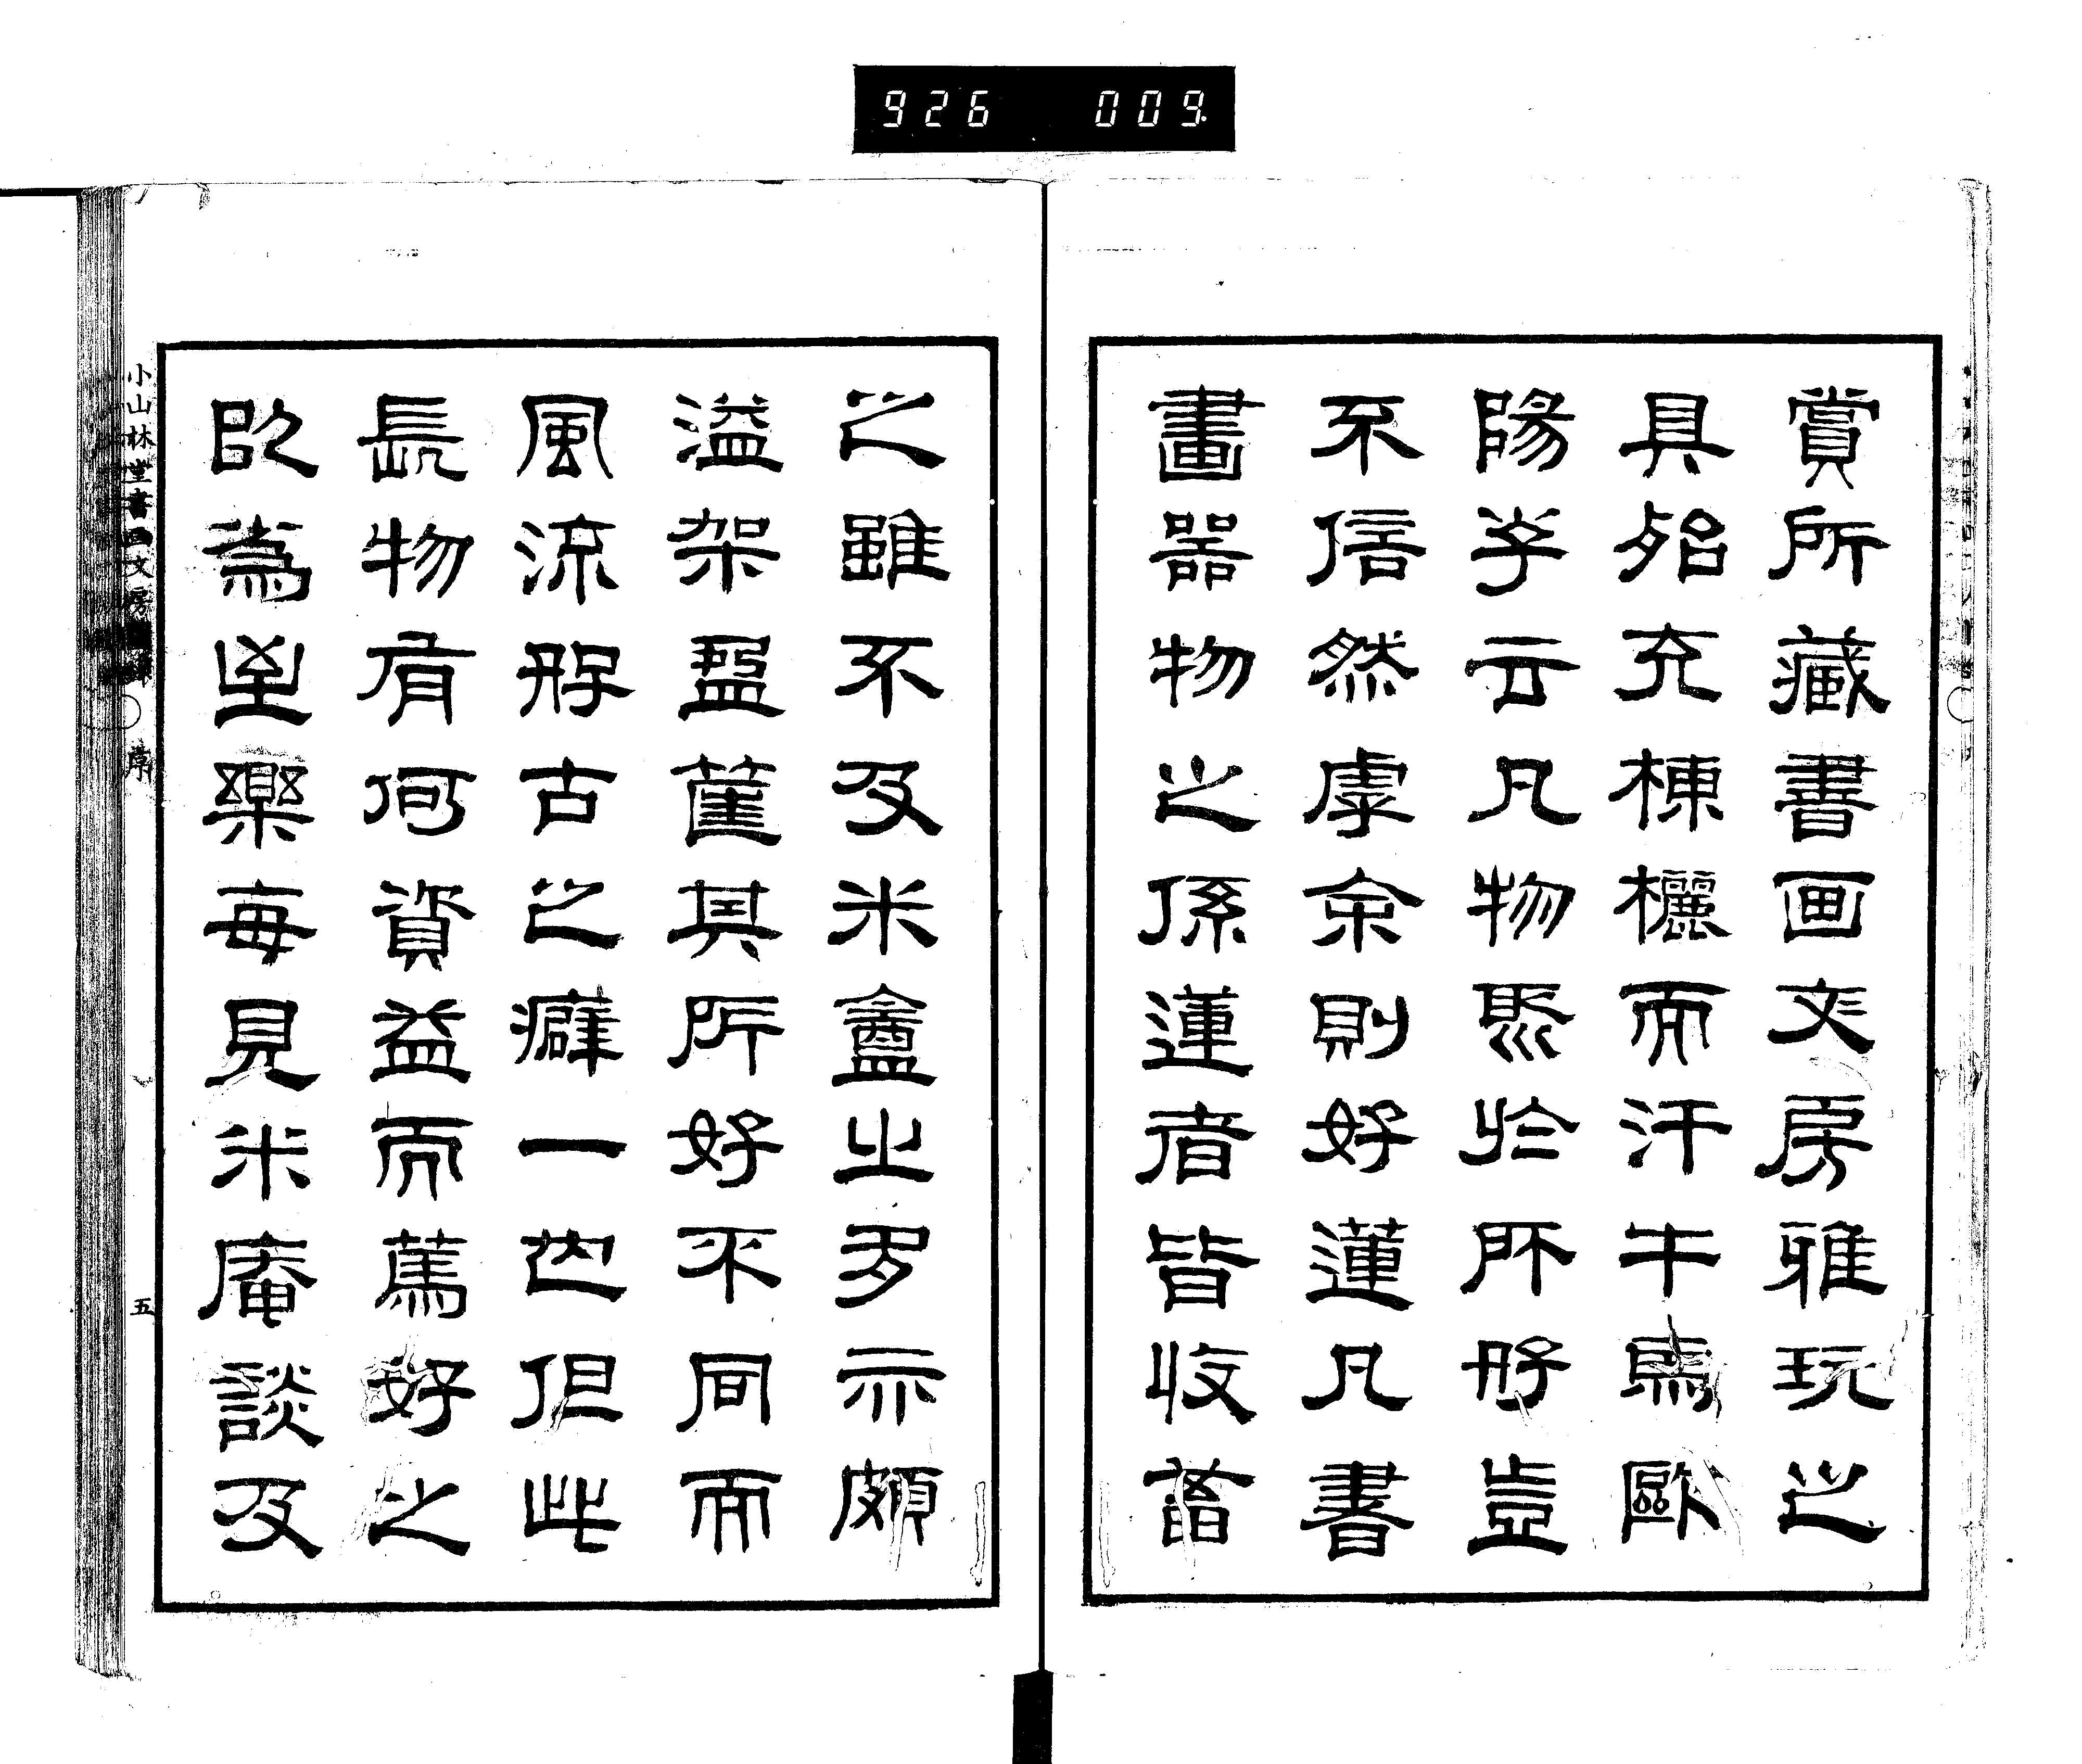 賞所藏書画文房雅玩之
具殆充棟欐而汗牛馬歐
陽子云凡物聚於所好豈
不信然虖余則好蓮凡書
畫器物之係蓮者皆收蓄
之雖不及米盦之多亦頗
溢架盈其所好不同而
風流好古之癖一也但此
長物有何資益而篤好之
以為至樂每見米庵談及
小山林堂書画文房圖録 序 五
926 009